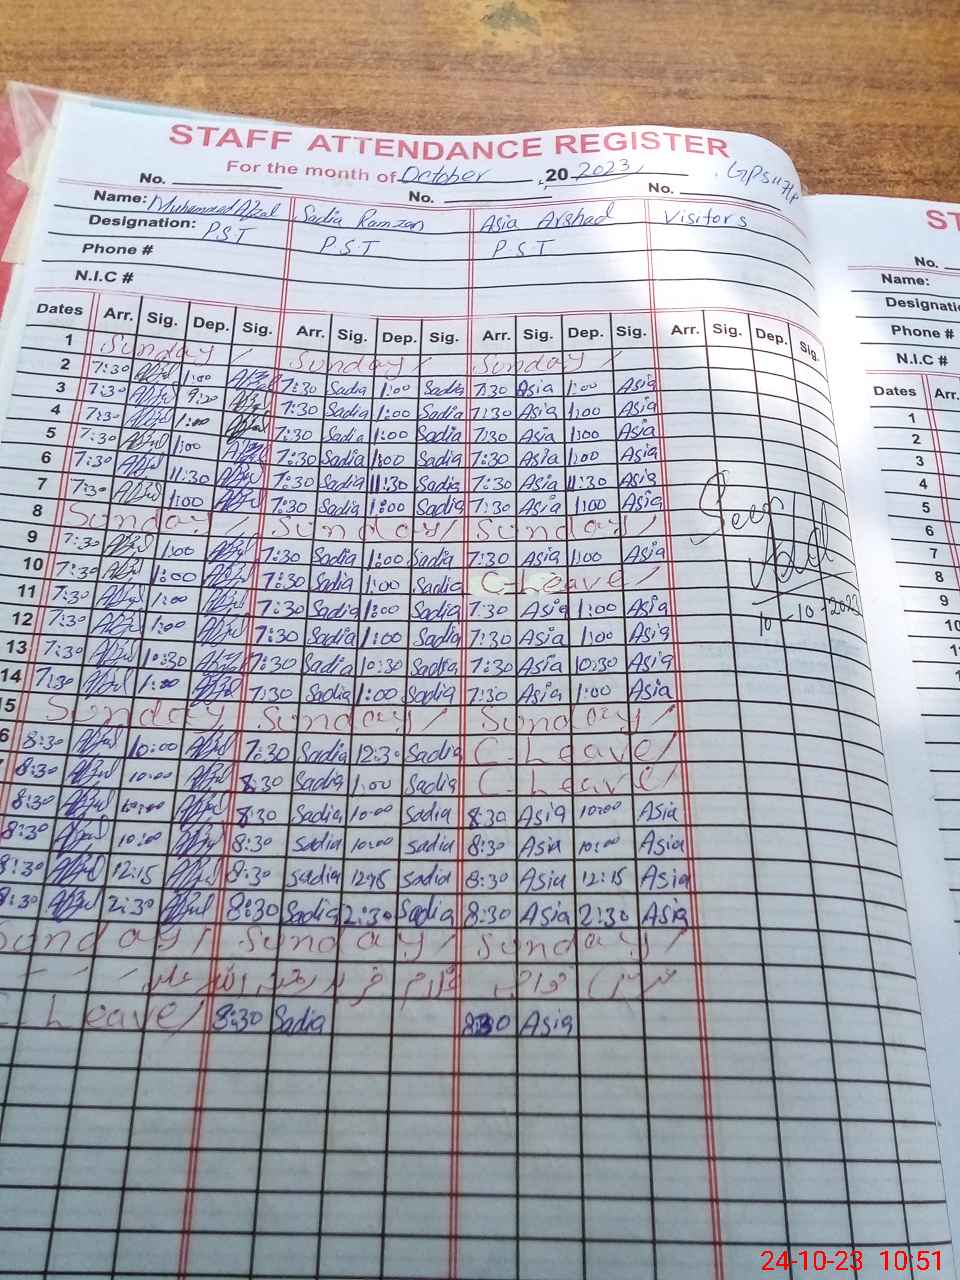 STAFF ATTENDANCE REGISTER
For the month of October, 20 2023
No. No. No.
Name: Muhammad Afzal Sadia Ramzan Asia Arshad Visitors
Designation: PST PST PST
Phone #
N.I.C #
Dates Arr. Sig. Dep. Sig. Arr. Sig. Dep. Sig. Arr. Sig. Dep. Sig. Arr. Sig. Dep. Sig.
1 Sunday / Sunday / Sunday /
2 7:30 Afzal 1:00 Afzal 7:30 Sadia 1:00 Sadia 7:30 Asia 1:00 Asia
3 7:30 Afzal 9:20 Afzal 7:30 Sadia 1:00 Sadia 7:30 Asia 1:00 Asia
4 7:30 Afzal 1:00 Afzal 7:30 Sadia 1:00 Sadia 7:30 Asia 1:00 Asia
5 7:30 Afzal 1:00 Afzal 7:30 Sadia 1:00 Sadia 7:30 Asia 1:00 Asia
6 7:30 Afzal 11:30 Afzal 7:30 Sadia 11:30 Sadia 7:30 Asia 11:30 Asia
7 7:30 Afzal 1:00 Afzal 7:30 Sadia 1:00 Sadia 7:30 Asia 1:00 Asia
8 Sunday / Sunday / Sunday /
9 7:30 Afzal 1:00 Afzal 7:30 Sadia 1:00 Sadia 7:30 Asia 1:00 Asia
10 7:30 Afzal 1:00 Afzal 7:30 Sadia 1:00 Sadia C-Leave /
11 7:30 Afzal 1:00 Afzal 7:30 Sadia 1:00 Sadia 7:30 Asia 1:00 Asia
12 7:30 Afzal 1:00 Afzal 7:30 Sadia 1:00 Sadia 7:30 Asia 1:00 Asia
13 7:30 Afzal 10:30 Afzal 7:30 Sadia 10:30 Sadia 7:30 Asia 10:30 Asia
14 7:30 Afzal 1:00 Afzal 7:30 Sadia 1:00 Sadia 7:30 Asia 1:00 Asia
15 Sunday Sunday / Sunday /
6 8:30 Afzal 10:00 Afzal 7:30 Sadia 12:30 Sadia C-Leave /
8:30 Afzal 10:00 Afzal 8:30 Sadia 1:00 Sadia C-Leave /
8:30 Afzal 10:00 Afzal 8:30 Sadia 10:00 Sadia 8:30 Asia 10:00 Asia
8:30 Afzal 10:00 Afzal 8:30 sadia 10:00 sadia 8:30 Asia 10:00 Asia
8:30 Afzal 12:15 Afzal 8:30 sadia 12:15 sadia 8:30 Asia 12:15 Asia
8:30 Afzal 2:30 Afzal 8:30 Sadia 2:30 Sadia 8:30 Asia 2:30 Asia
Sunday / Sunday / Sunday /
Leave / 8:30 Sadia 8:30 Asia
Seen
10-10-2023
ST
No.
Name:
Designatio
Phone #
N.I.C #
Dates Arr.
1
2
3
4
5
6
7
8
9
10
24-10-23 10:51